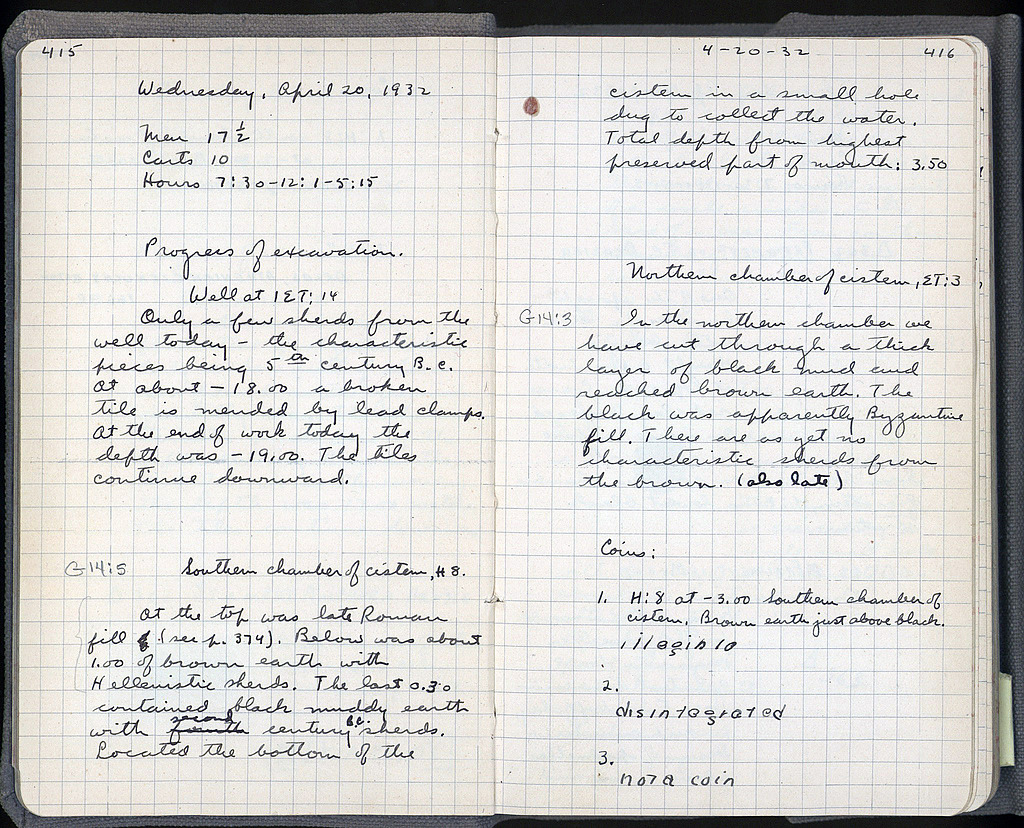 415
Wednesday, April 20, 1932
Men 17 ½
Carts 10
Hours 7:30-12: 1-5:15
Progress of excavation.
Well at 1 ET: 14
Only a few sherds from the
well today - the characteristic
pieces being 5th century B.C.
At about -18.00 a broken
tile is mended by lead clamps.
At the end of work today the
depth was -19.00. The tiles
continue downward.
G 14:5 Southern chamber of cistern, H 8.
At the top was late Roman
fill (see p. 374). Below was about
1.00 of brown earth with
Hellenistic sherds. The last 0.30
contained black muddy earth
with fourth second century B.C. sherds.
Located the bottom of the
4-20-32 416
cistern in a small hole
dug to collect the water.
Total depth from highest
preserved part of mouth: 3.50
Northern chamber of cistern, ET:3
G 14:3 In the northern chamber we
have cut through a thick
layer of black mud and
reached brown earth. The
black was apparently Byzantine
fill. There are as yet no
characteristic sherds from
the brown. (also late)
Coins:
1. H:8 at -3.00 Southern chamber of
cistern. Brown earth just above black.
illegible
2.
disintegrated
3.
not a coin